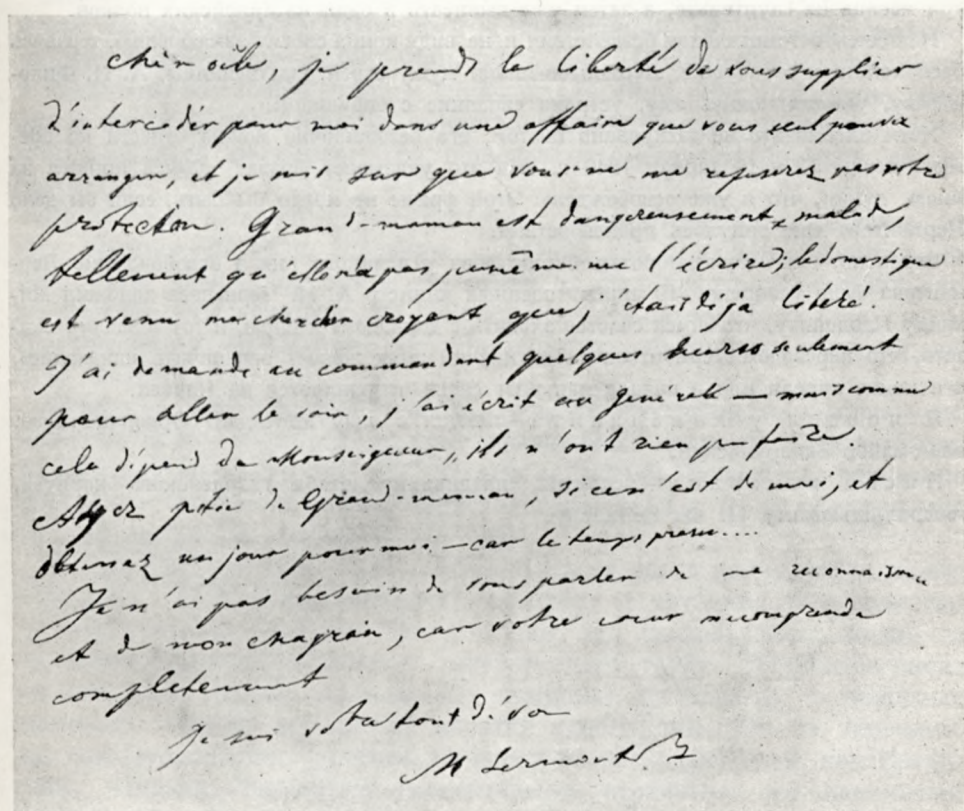 Cher oncle, je prends la liberté de vous supplier
d'intercéder pour moi dans une affaire que vous seul pouvez
arranger, et je suis sur que vous ne me refuserez pas votre
protection. Grand-maman est dangereusement malade,
tellement qu'elle n'a pas pu même me l'écrire; le domestique
est venu me chercher croyant que j'étais déja libéré.
J'ai demandé au commandant quelques heures seulement
pour aller la voir, j'ai écrit au général — mais comme
cela dépend de Monseigneur, ils n'ont rien pu faire.
Ayez pitié de Grand-maman, si ce n'est de moi, et
obtenez un jour pour moi — car le temps presse....
Je n'ai pas besoin de vous parler de ma reconnaissance
et de mon chagrin, car votre cœur me comprendra
completement
Je suis votre tout dévoué
M Lermont